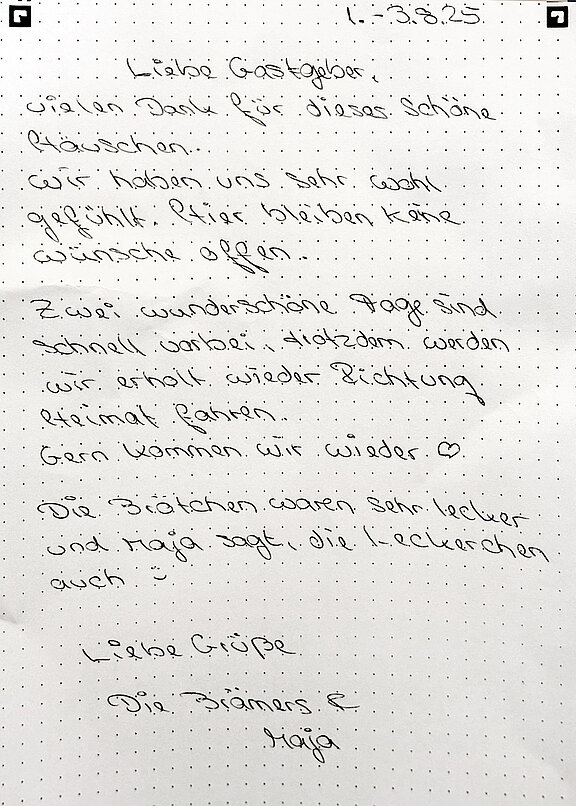 1.-3.8.25
Liebe Gastgeber,
vielen Dank für dieses schöne
Häuschen.
Wir haben uns sehr wohl
gefühlt. Hier bleiben keine
Wünsche offen.
Zwei wunderschöne Tage sind
schnell vorbei, trotzdem werden
wir erholt wieder Richtung
Heimat fahren.
Gern kommen wir wieder ♡
Die Brötchen waren sehr lecker
und Maja sagt, die Leckerchen
auch :-)
Liebe Grüße
Die Brämers &
Maja